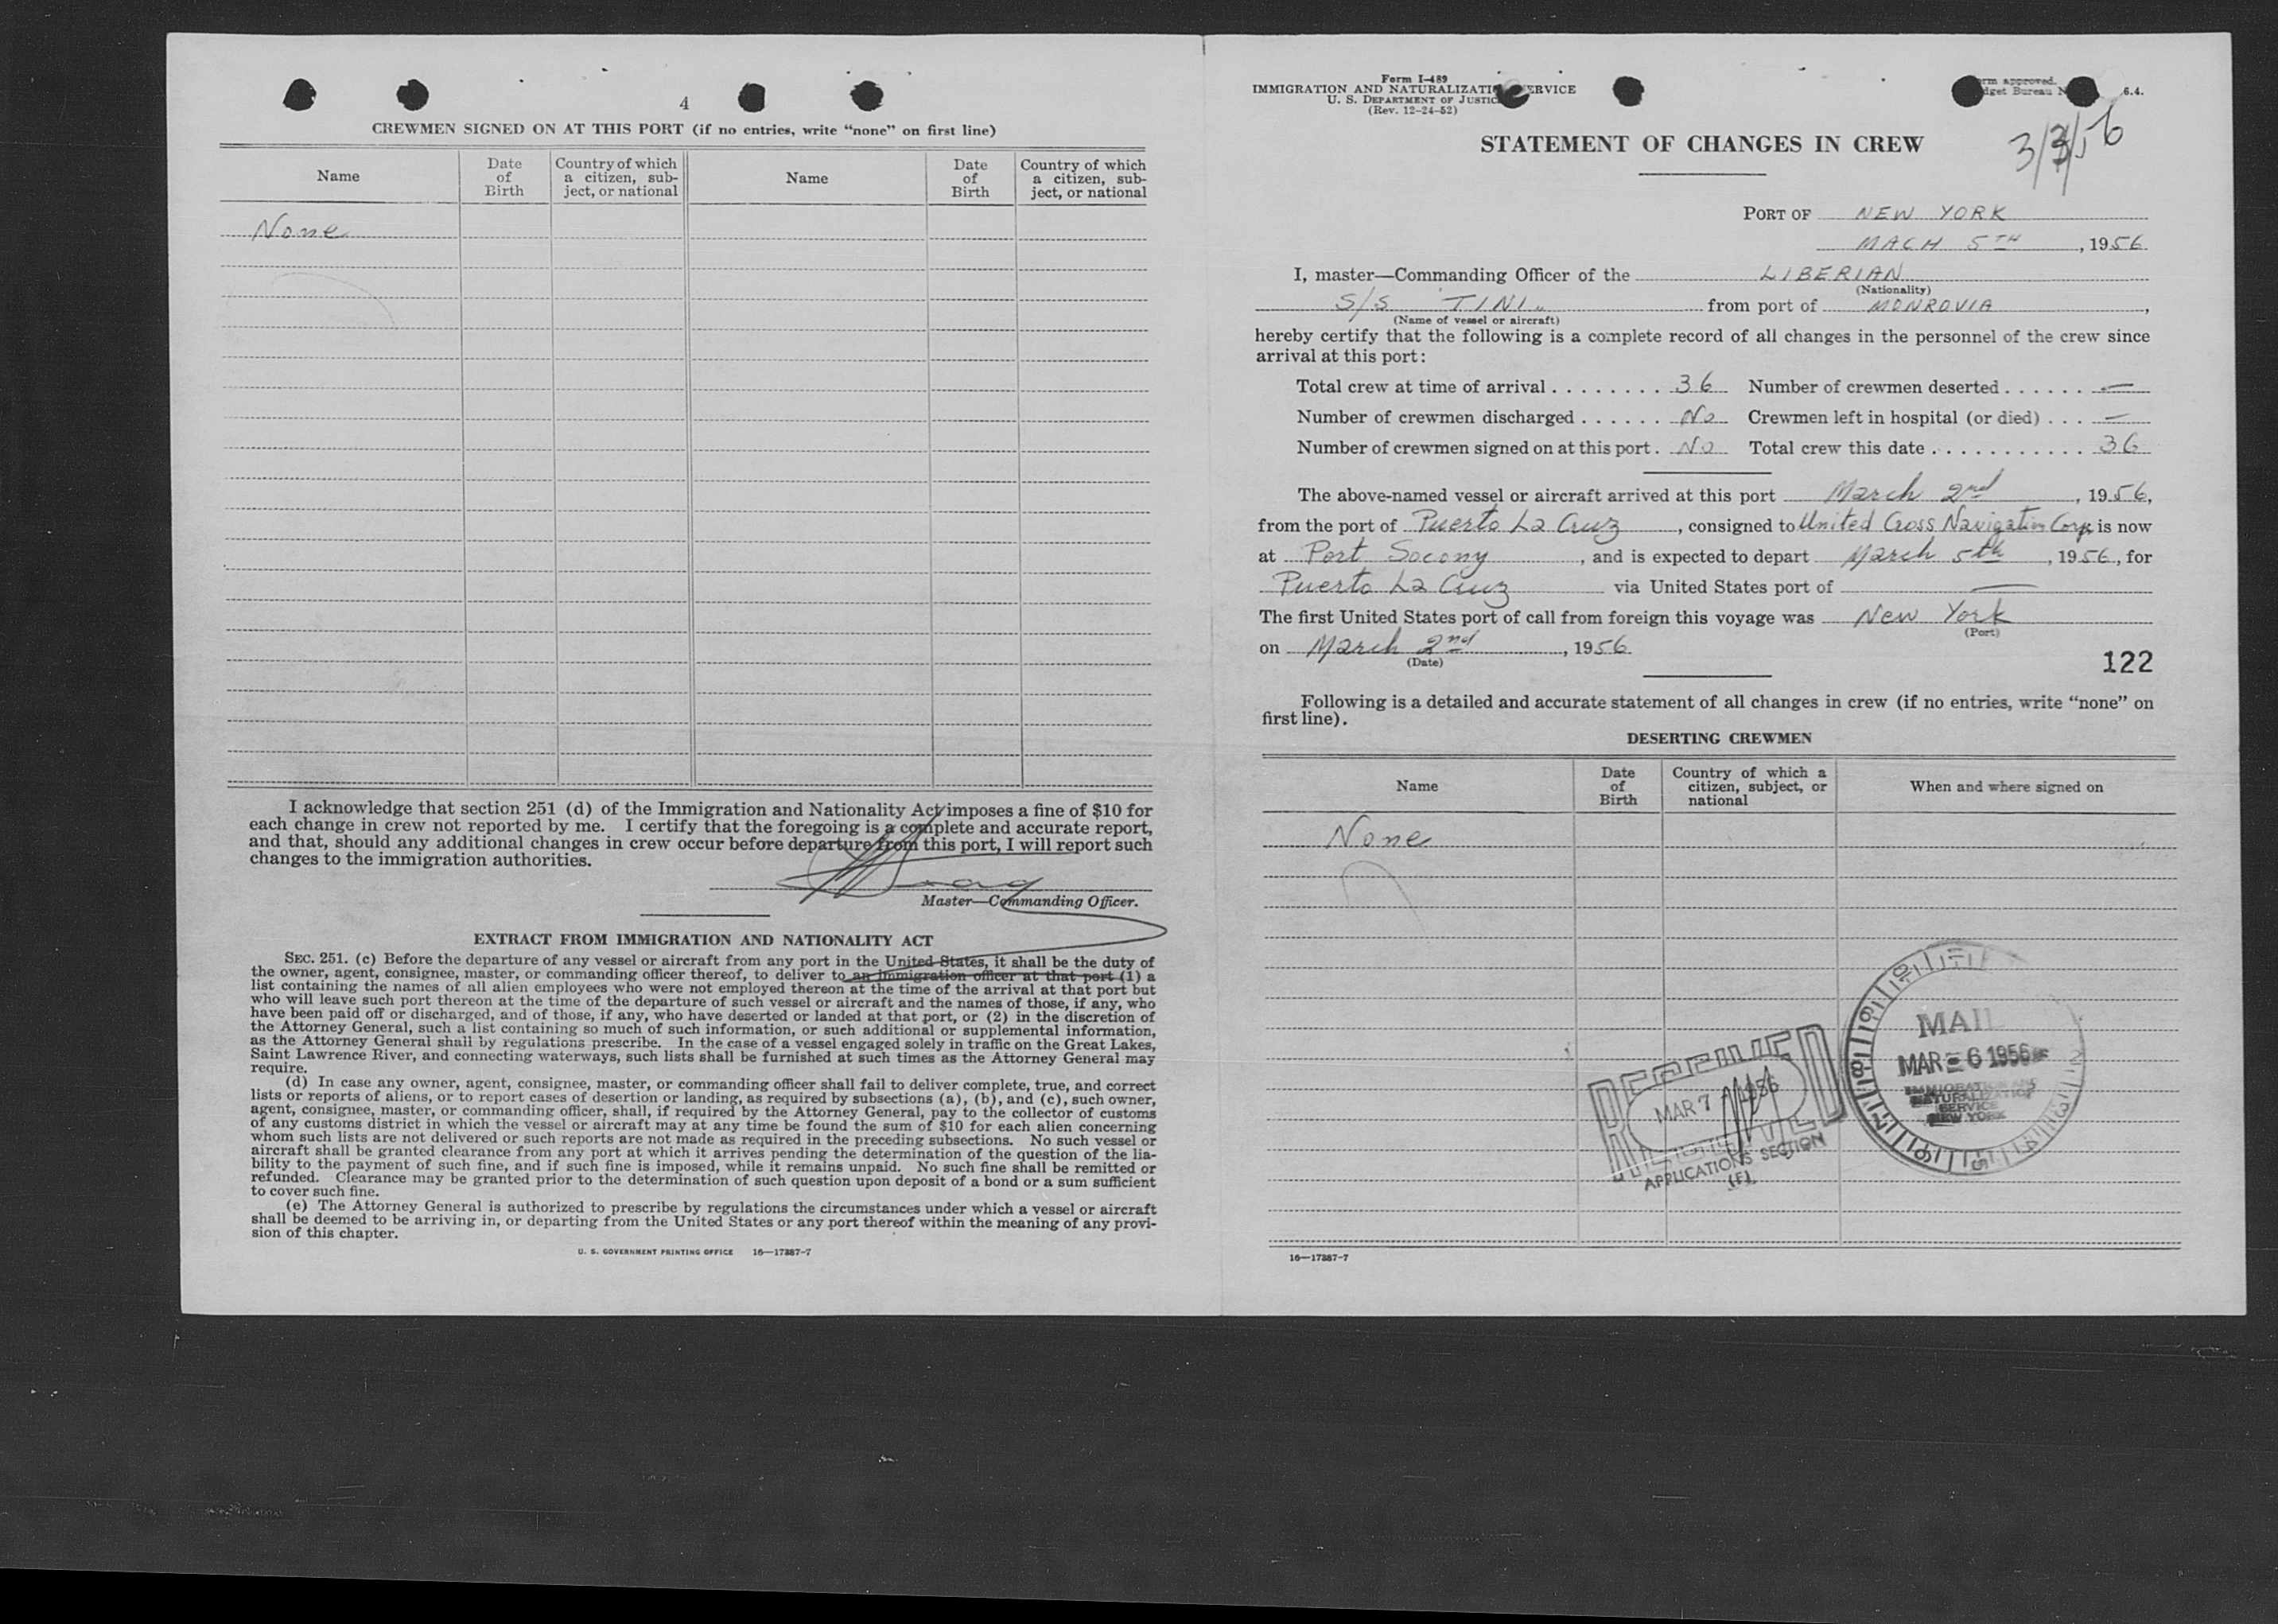 4
CREWMEN SIGNED ON AT THIS PORT (if no entries, write “none” on first line)
Name Date of Birth Country of which a citizen, sub-ject, or national Name Date of Birth Country of which a citizen, sub-ject, or national
None
I acknowledge that section 251 (d) of the Immigration and Nationality Act imposes a fine of $10 for
each change in crew not reported by me. I certify that the foregoing is a complete and accurate report,
and that, should any additional changes in crew occur before departure from this port, I will report such
changes to the immigration authorities.
Master—Commanding Officer.
EXTRACT FROM IMMIGRATION AND NATIONALITY ACT
SEC. 251. (c) Before the departure of any vessel or aircraft from any port in the United States, it shall be the duty of
the owner, agent, consignee, master, or commanding officer thereof, to deliver to an immigration officer at that port (1) a
list containing the names of all alien employees who were not employed thereon at the time of the arrival at that port but
who will leave such port thereon at the time of the departure of such vessel or aircraft and the names of those, if any, who
have been paid off or discharged, and of those, if any, who have deserted or landed at that port, or (2) in the discretion of
the Attorney General, such a list containing so much of such information, or such additional or supplemental information,
as the Attorney General shall by regulations prescribe. In the case of a vessel engaged solely in traffic on the Great Lakes,
Saint Lawrence River, and connecting waterways, such lists shall be furnished at such times as the Attorney General may
require.
(d) In case any owner, agent, consignee, master, or commanding officer shall fail to deliver complete, true, and correct
lists or reports of aliens, or to report cases of desertion or landing, as required by subsections (a), (b), and (c), such owner,
agent, consignee, master, or commanding officer, shall, if required by the Attorney General, pay to the collector of customs
of any customs district in which the vessel or aircraft may at any time be found the sum of $10 for each alien concerning
whom such lists are not delivered or such reports are not made as required in the preceding subsections. No such vessel or
aircraft shall be granted clearance from any port at which it arrives pending the determination of the question of the lia-
bility to the payment of such fine, and if such fine is imposed, while it remains unpaid. No such fine shall be remitted or
refunded. Clearance may be granted prior to the determination of such question upon deposit of a bond or a sum sufficient
to cover such fine.
(e) The Attorney General is authorized to prescribe by regulations the circumstances under which a vessel or aircraft
shall be deemed to be arriving in, or departing from the United States or any port thereof within the meaning of any provi-
sion of this chapter.
U. S. GOVERNMENT PRINTING OFFICE 16—17387-7
Form I-489
IMMIGRATION AND NATURALIZATION SERVICE
U. S. DEPARTMENT OF JUSTICE
(Rev. 12-24-52)
approved.
Bureau 6.4.
STATEMENT OF CHANGES IN CREW
3/3/56
PORT OF NEW YORK
MACH 5TH, 1956
I, master—Commanding Officer of the LIBERIAN
(Nationality)
S/S "TINI" from port of MONROVIA,
(Name of vessel or aircraft)
hereby certify that the following is a complete record of all changes in the personnel of the crew since
arrival at this port:
Total crew at time of arrival ........ 36 Number of crewmen deserted ...... —
Number of crewmen discharged ...... No Crewmen left in hospital (or died) ... —
Number of crewmen signed on at this port. No Total crew this date ........... 36
The above-named vessel or aircraft arrived at this port March 2nd, 1956,
from the port of Puerto La Cruz, consigned to United Cross Navigation Corp. is now
at Port Socony, and is expected to depart March 5th, 1956, for
Puerto La Cruz via United States port of —
The first United States port of call from foreign this voyage was New York
(Port)
on March 2nd, 1956
(Date)
122
Following is a detailed and accurate statement of all changes in crew (if no entries, write “none” on
first line).
DESERTING CREWMEN
Name Date of Birth Country of which a citizen, subject, or national When and where signed on
None
RECEIVED
MAR 7 - 1956
APPLICATIONS SECTION
(F)
MAIL
MAR 6 1956
IMMIGRATION AND
NATURALIZATION
SERVICE
NEW YORK
16—17387-7